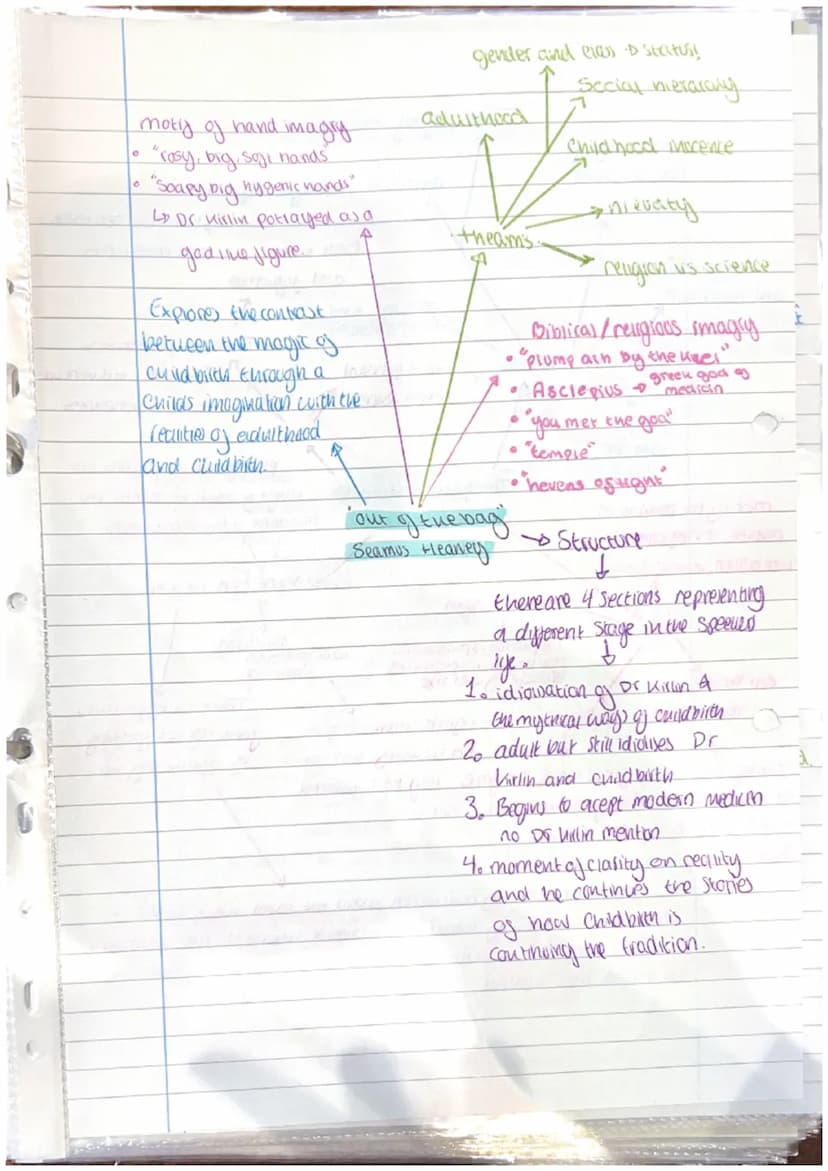 gender and class → status!
Social hierarchy
adulthood
childhood inocence
nievity
theams
religion vs science
motif of hand imagry
• "rosy, big, soft hands"
• "soapy big hygenic hands"
↳ Dr Kirlin potrayed as a
god like figure.
Explores the contrast
between the magic of
childbirth through a
childs imagination with the
realities of adulthood
and childbirth.
Biblical/religious imagry
• "plump ach by the kiel"
• Asclepius → greek god of
medicin
• "you met the god"
• "temple"
• "hevens of light"
"out of the bag"
Seamus Heaney
→ Structure
there are 4 sections representing
a different stage in the speeeo
life.
1. idiolation of Dr Kirlin &
the mythical ways of childbirth
2. adult but still idolises Dr
Kirlin and childbirth
3. Begins to acept modern medicin
no Dr Kirlin mention
4. moment of clarity on reality
and he continues the stories
of how Childbirth is
continuing the tradition.